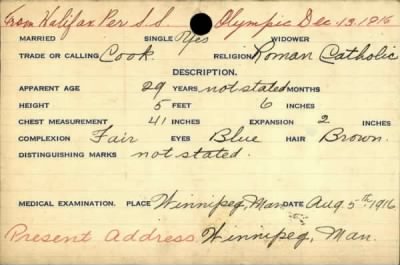 From Halifax Per S.S. Olympic Dec. 13. 1916
MARRIED SINGLE Yes WIDOWER
TRADE OR CALLING Cook. RELIGION Roman Catholic
DESCRIPTION.
APPARENT AGE 29 YEARS not stated MONTHS
HEIGHT 5 FEET 6 INCHES
CHEST MEASUREMENT 41 INCHES EXPANSION 2 INCHES
COMPLEXION Fair EYES Blue HAIR Brown.
DISTINGUISHING MARKS not stated.
MEDICAL EXAMINATION. PLACE Winnipeg, Man DATE Aug. 5th. 1916
Present Address. Winnipeg, Man.